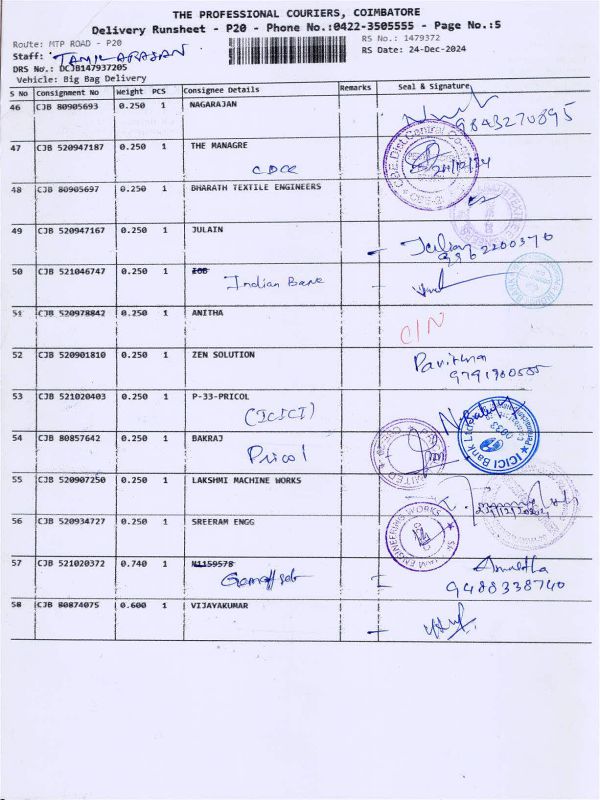 THE PROFESSIONAL COURIERS, COIMBATORE
Delivery Runsheet - P20 - Phone No.:0422-3505555 - Page No.:5
Route: MTP ROAD - P20
RS No.: 1479372
Staff: TAMIL ARASAN
RS Date: 24-Dec-2024
DRS No.: DCJB147937205
Vehicle: Big Bag Delivery
S No Consignment No Weight PCS Consignee Details Remarks Seal & Signature
46 CJB 80905693 0.250 1 NAGARAJAN
9843270895
47 CJB 520947187 0.250 1 THE MANAGRE
CDCC 24/12/24
48 CJB 80905697 0.250 1 BHARATH TEXTILE ENGINEERS
49 CJB 520947167 0.250 1 JULAIN
Julian
50 CJB 521046747 0.250 1 IOB
Indian Bank
51 CJB 520978842 0.250 1 ANITHA
C/N
52 CJB 520901810 0.250 1 ZEN SOLUTION
Pavithra
53 CJB 521020403 0.250 1 P-33-PRICOL
(ICICI)
ICICI Bank Ltd
54 CJB 80857642 0.250 1 BAKRAJ
Pricol
55 CJB 520907250 0.250 1 LAKSHMI MACHINE WORKS
56 CJB 520934727 0.250 1 SREERAM ENGG
ENGINEERING WORKS
57 CJB 521020372 0.740 1 N1159578
9488338740
58 CJB 80874075 0.600 1 VIJAYAKUMAR